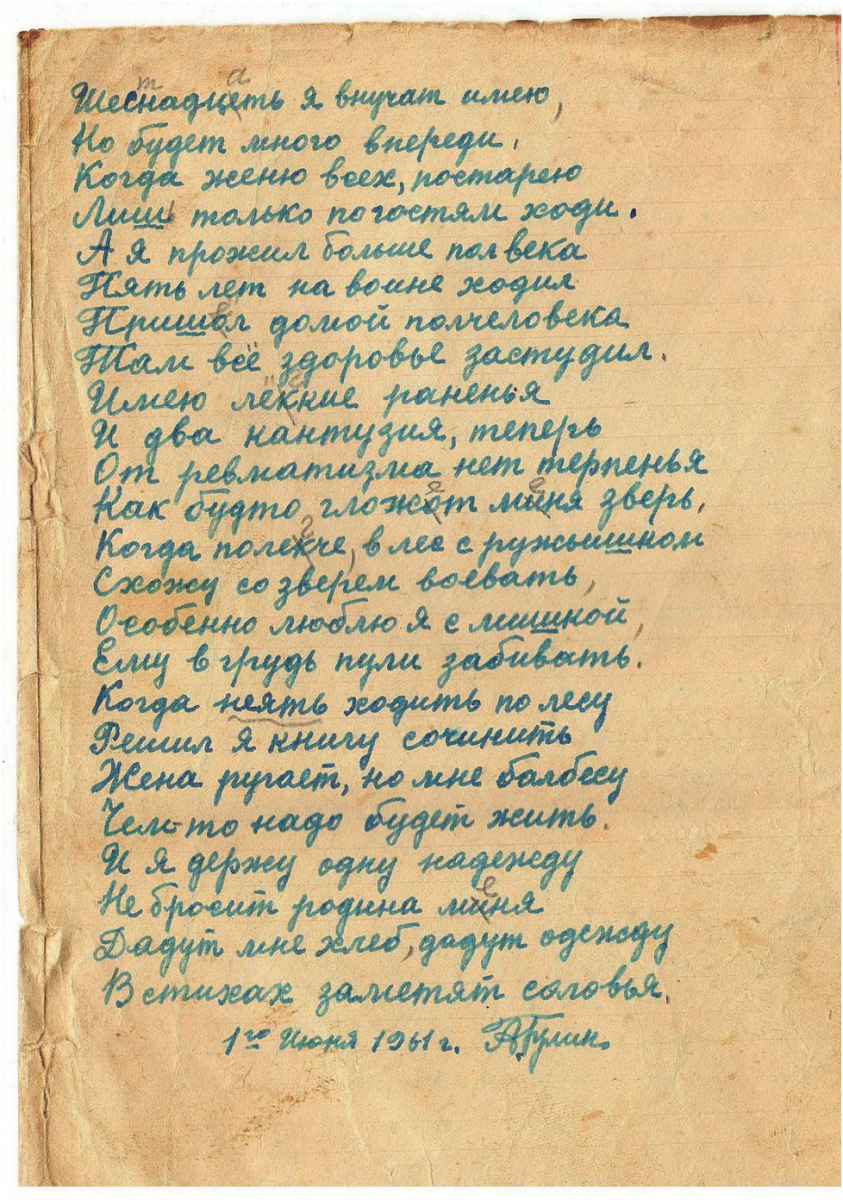 Шеснадцеть я внучат имею,
Но будет много впереди.
Когда женю всех, постарею
Лиш только по гостям ходи.
А я прожил больше полвека
Пять лет на воине ходил
Пришол домой полчеловека
Там всё здоровье застудил.
Имею лёккие раненья
И два кантузия, теперь
От ревматизма нет терпенья
Как будто гложот миня зверь,
Когда полекче, в лес с ружьишком
Схожу со зверем воевать,
Особенно люблю я с мишкой,
Ему в грудь пули забивать.
Когда неять ходить по лесу
Решил я книгу сочинить
Жена ругает, но мне балбесу
Чем-то надо будет жить.
И я держу одну надежду
Не бросит родина миня
Дадут мне хлеб, дадут одежду
В стихах заметят соловья.
1го Июня 1961 г. АГулин.